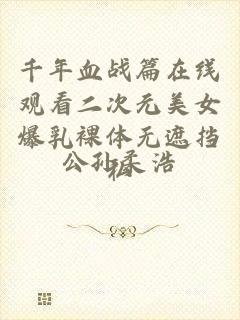 千年血战篇在线
观看二次元美女
爆乳裸体无遮挡
公孙柔浩